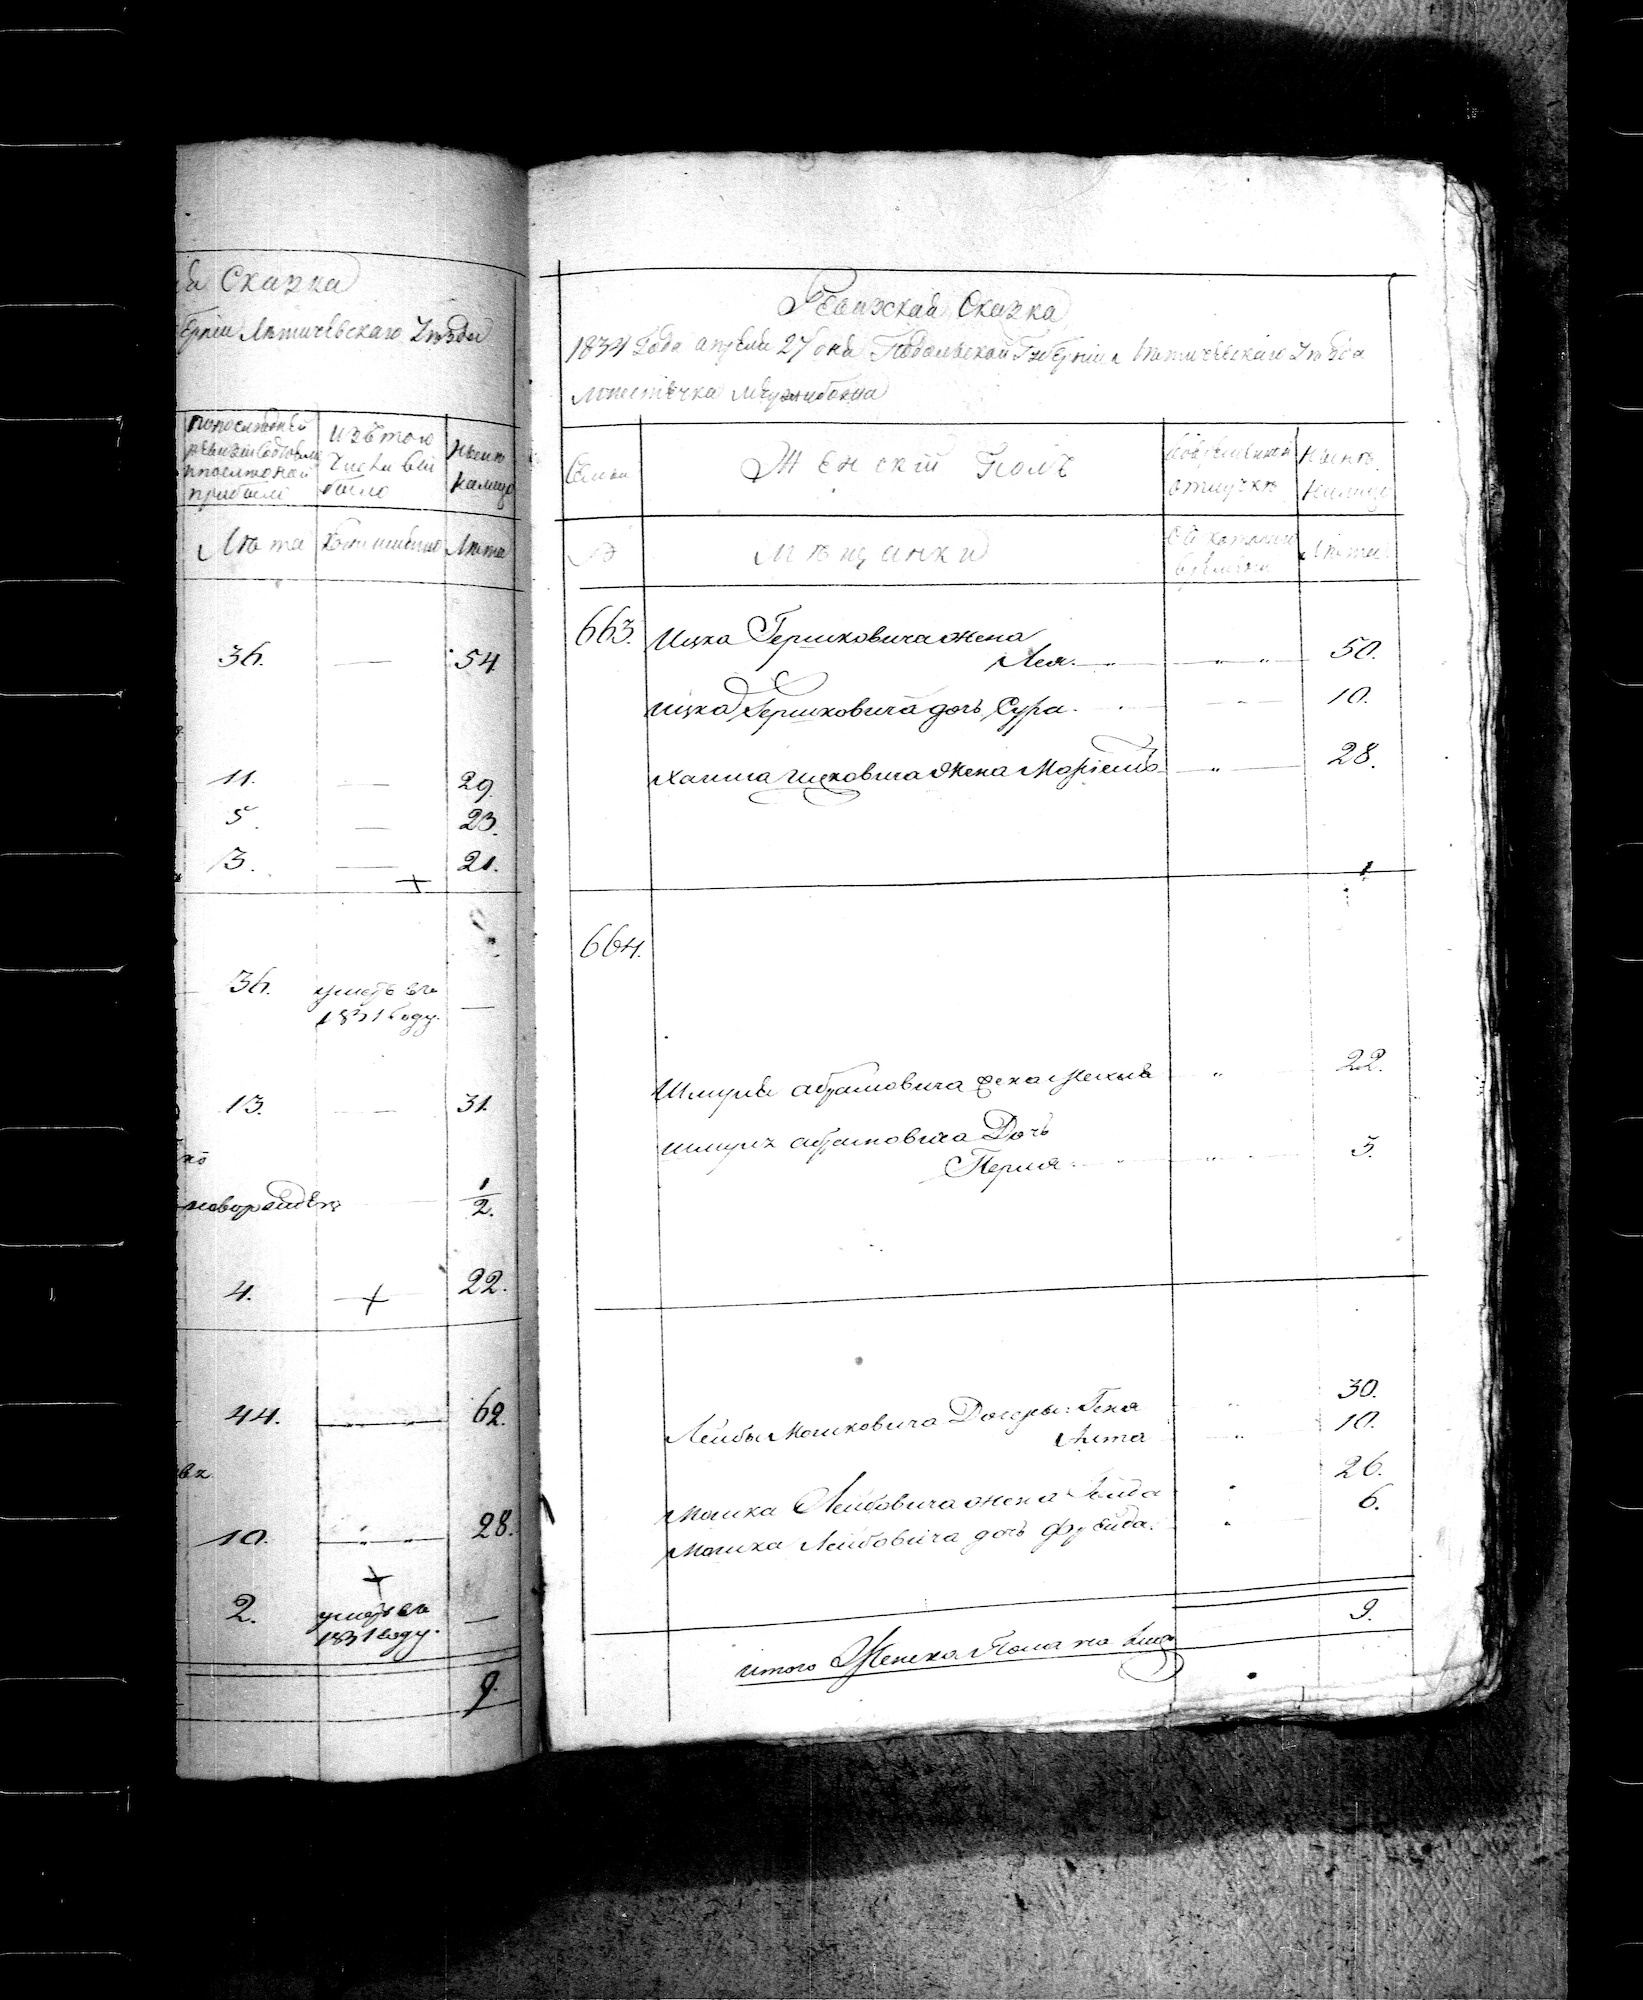 Сказка
Лѣтичевскаго Уѣзда
по последней
прибыло
изъ того
числа вы
было
ныне
налицо
Лѣта
Лѣта
36. — 54
11. — 29.
5. — 23.
3. — 21.
+
36. умеръ въ
1831 году. —
13. — 31.
новорожденъ 1/2.
4. + 22.
44. — 62.
10. — 28.
+
2. умеръ въ
1831 году. —
9.
Ревизская Сказка
1834 Года апреля 27 дня Подольской Губернии Лѣтичевскаго Уѣзда
местечка Меджибожа
Семьи
Женский Полъ
отлучке
Ныне
налицо
№
Мѣщанки
Лѣта
663. Ицка Гершковича жена
Лея. — 50.
Ицка Гершковича дочь Сура. — 10.
Хаима Ицковича жена — 28.
664.
Шмуля Абрамовича жена — 22.
Шмуля Абрамовича Дочь
Перля. — 3.
Лейбы Мошковича Дочери: Геня 30.
10.
Мошка Лейбовича жена 26.
Мошка Лейбовича дочь Фрейда. 6.
9.
итого Женска Пола на лицо